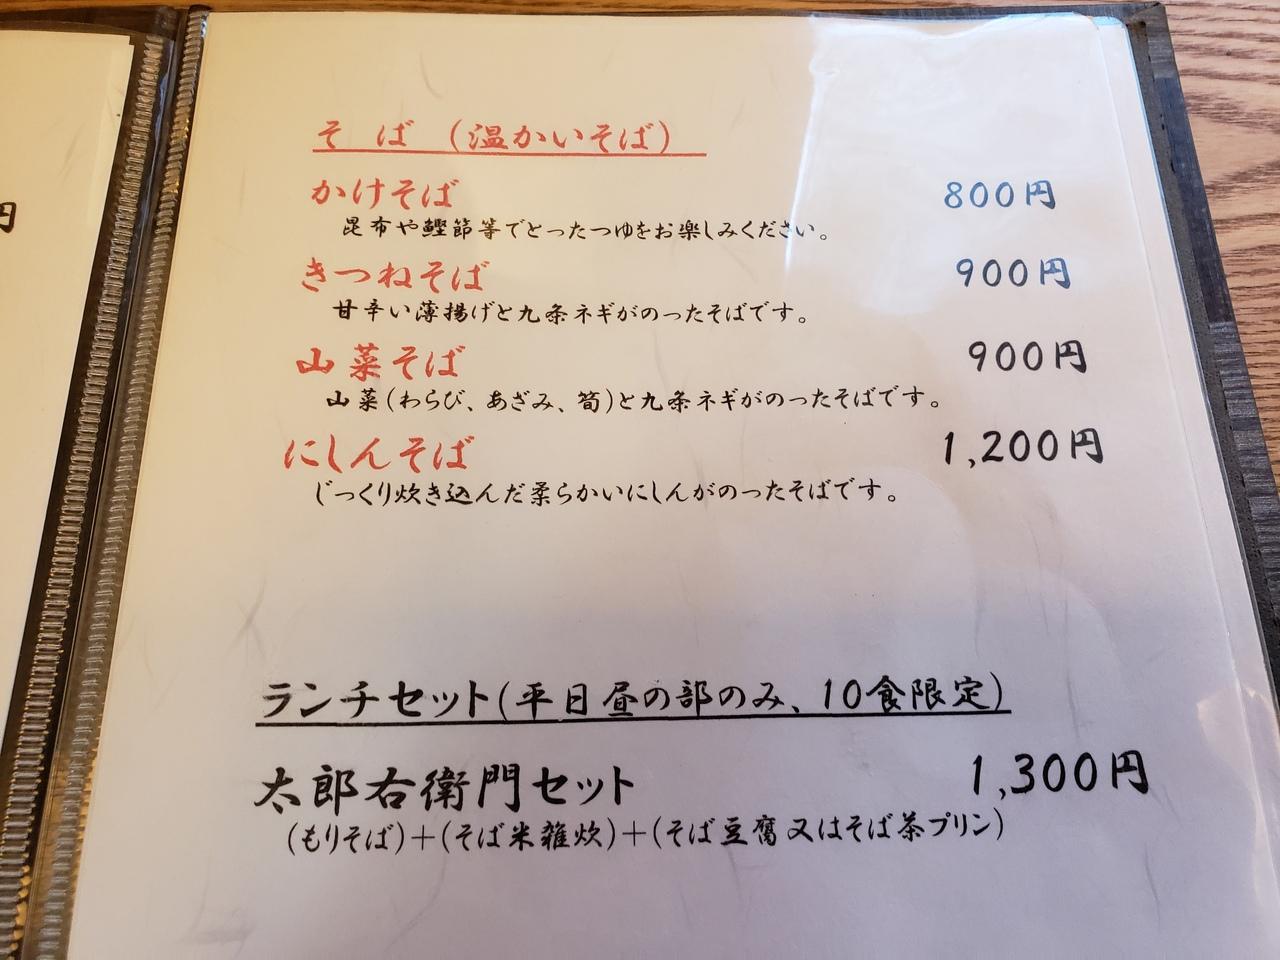 円
そ ば (温かいそば)
かけそば 800円
昆布や鰹節等でとったつゆをお楽しみください。
きつねそば 900円
甘辛い薄揚げと九条ネギがのったそばです。
山菜そば 900円
山菜(わらび、あざみ、筍)と九条ネギがのったそばです。
にしんそば 1,200円
じっくり炊き込んだ柔らかいにしんがのったそばです。
ランチセット(平日昼の部のみ、10食限定)
太郎右衛門セット 1,300円
(もりそば)+(そば米雑炊)+(そば豆腐又はそば茶プリン)